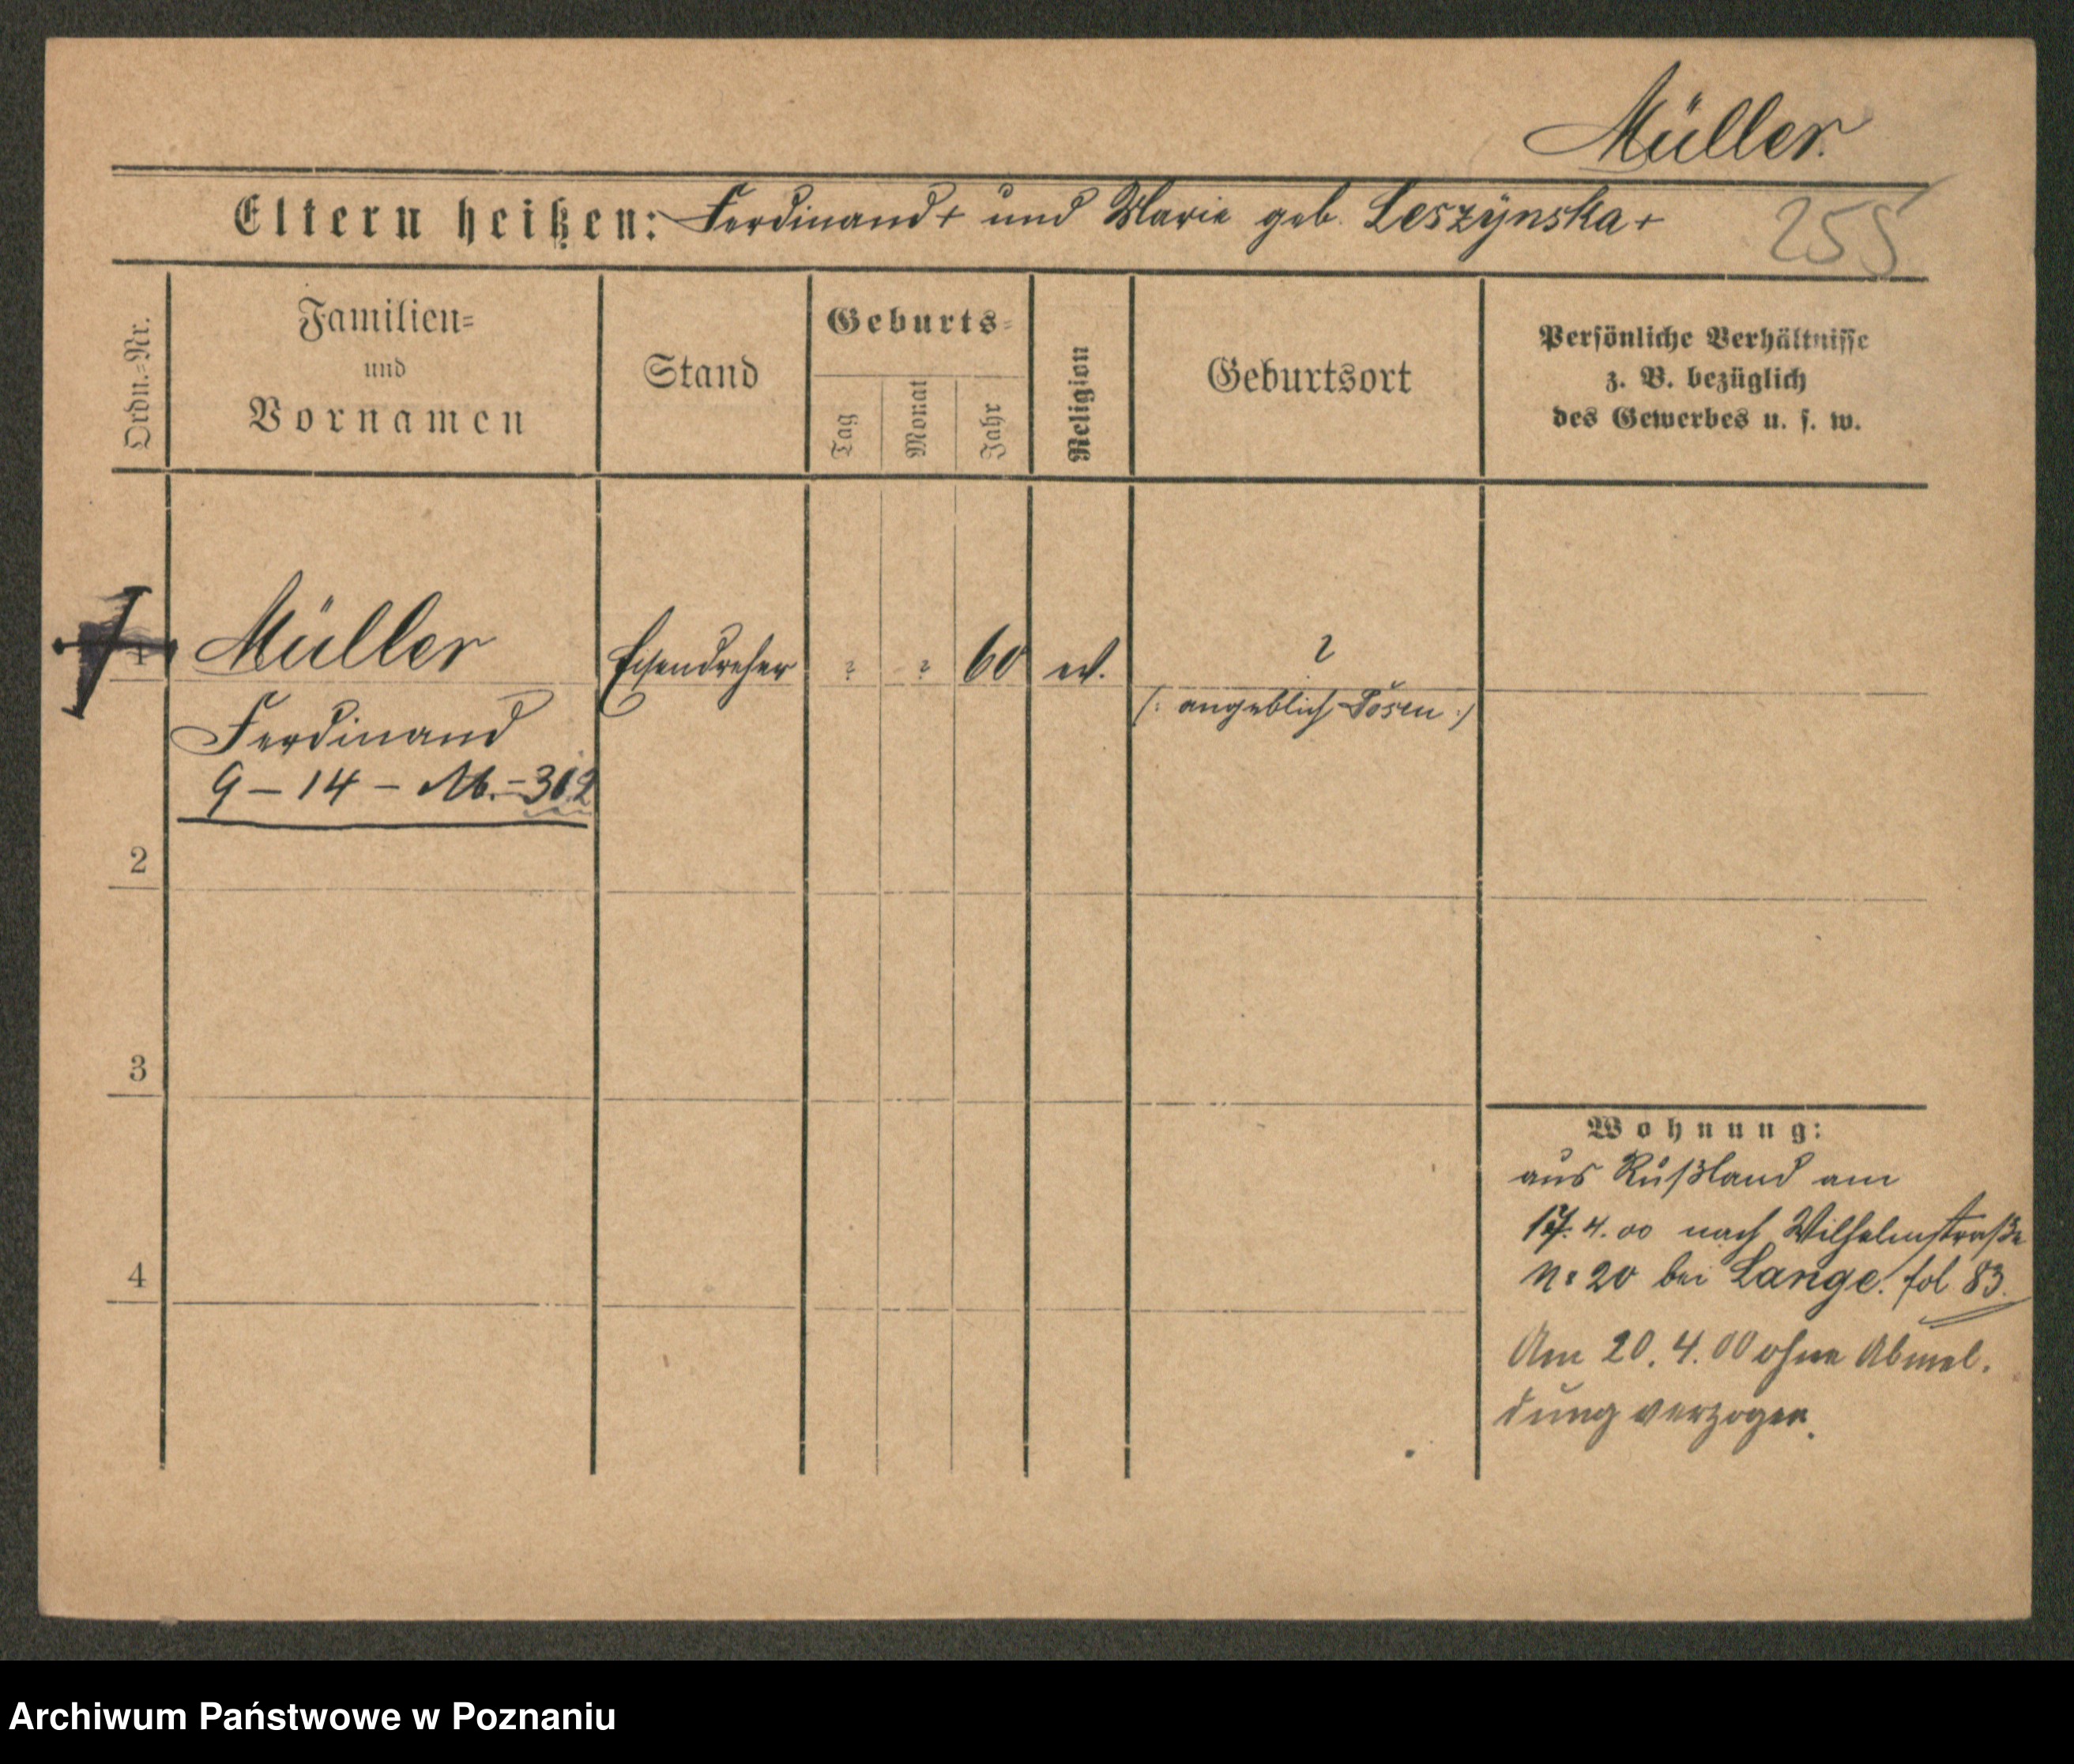 Müller.
Eltern heißen: Ferdinand + und Marie geb. Leszÿnska +
255
Ordn.=Nr.
Familien=
und
Vornamen
Stand
Geburts=
Tag
Monat
Jahr
Religion
Geburtsort
Persönliche Verhältnisse
z. B. bezüglich
des Gewerbes u. s. w.
1 Müller Eisendreher ? ? 60 ev. ?
Ferdinand (: angeblich Posen :)
9 – 14 – M. – 312
2
3
4
Wohnung:
aus Rußland am
17. 4. 00 nach Wilhelmstraße
N: 20 bei Lange. fol 83.
Am 20. 4. 00 ohne Abmel-
dung verzogen.
Archiwum Państwowe w Poznaniu